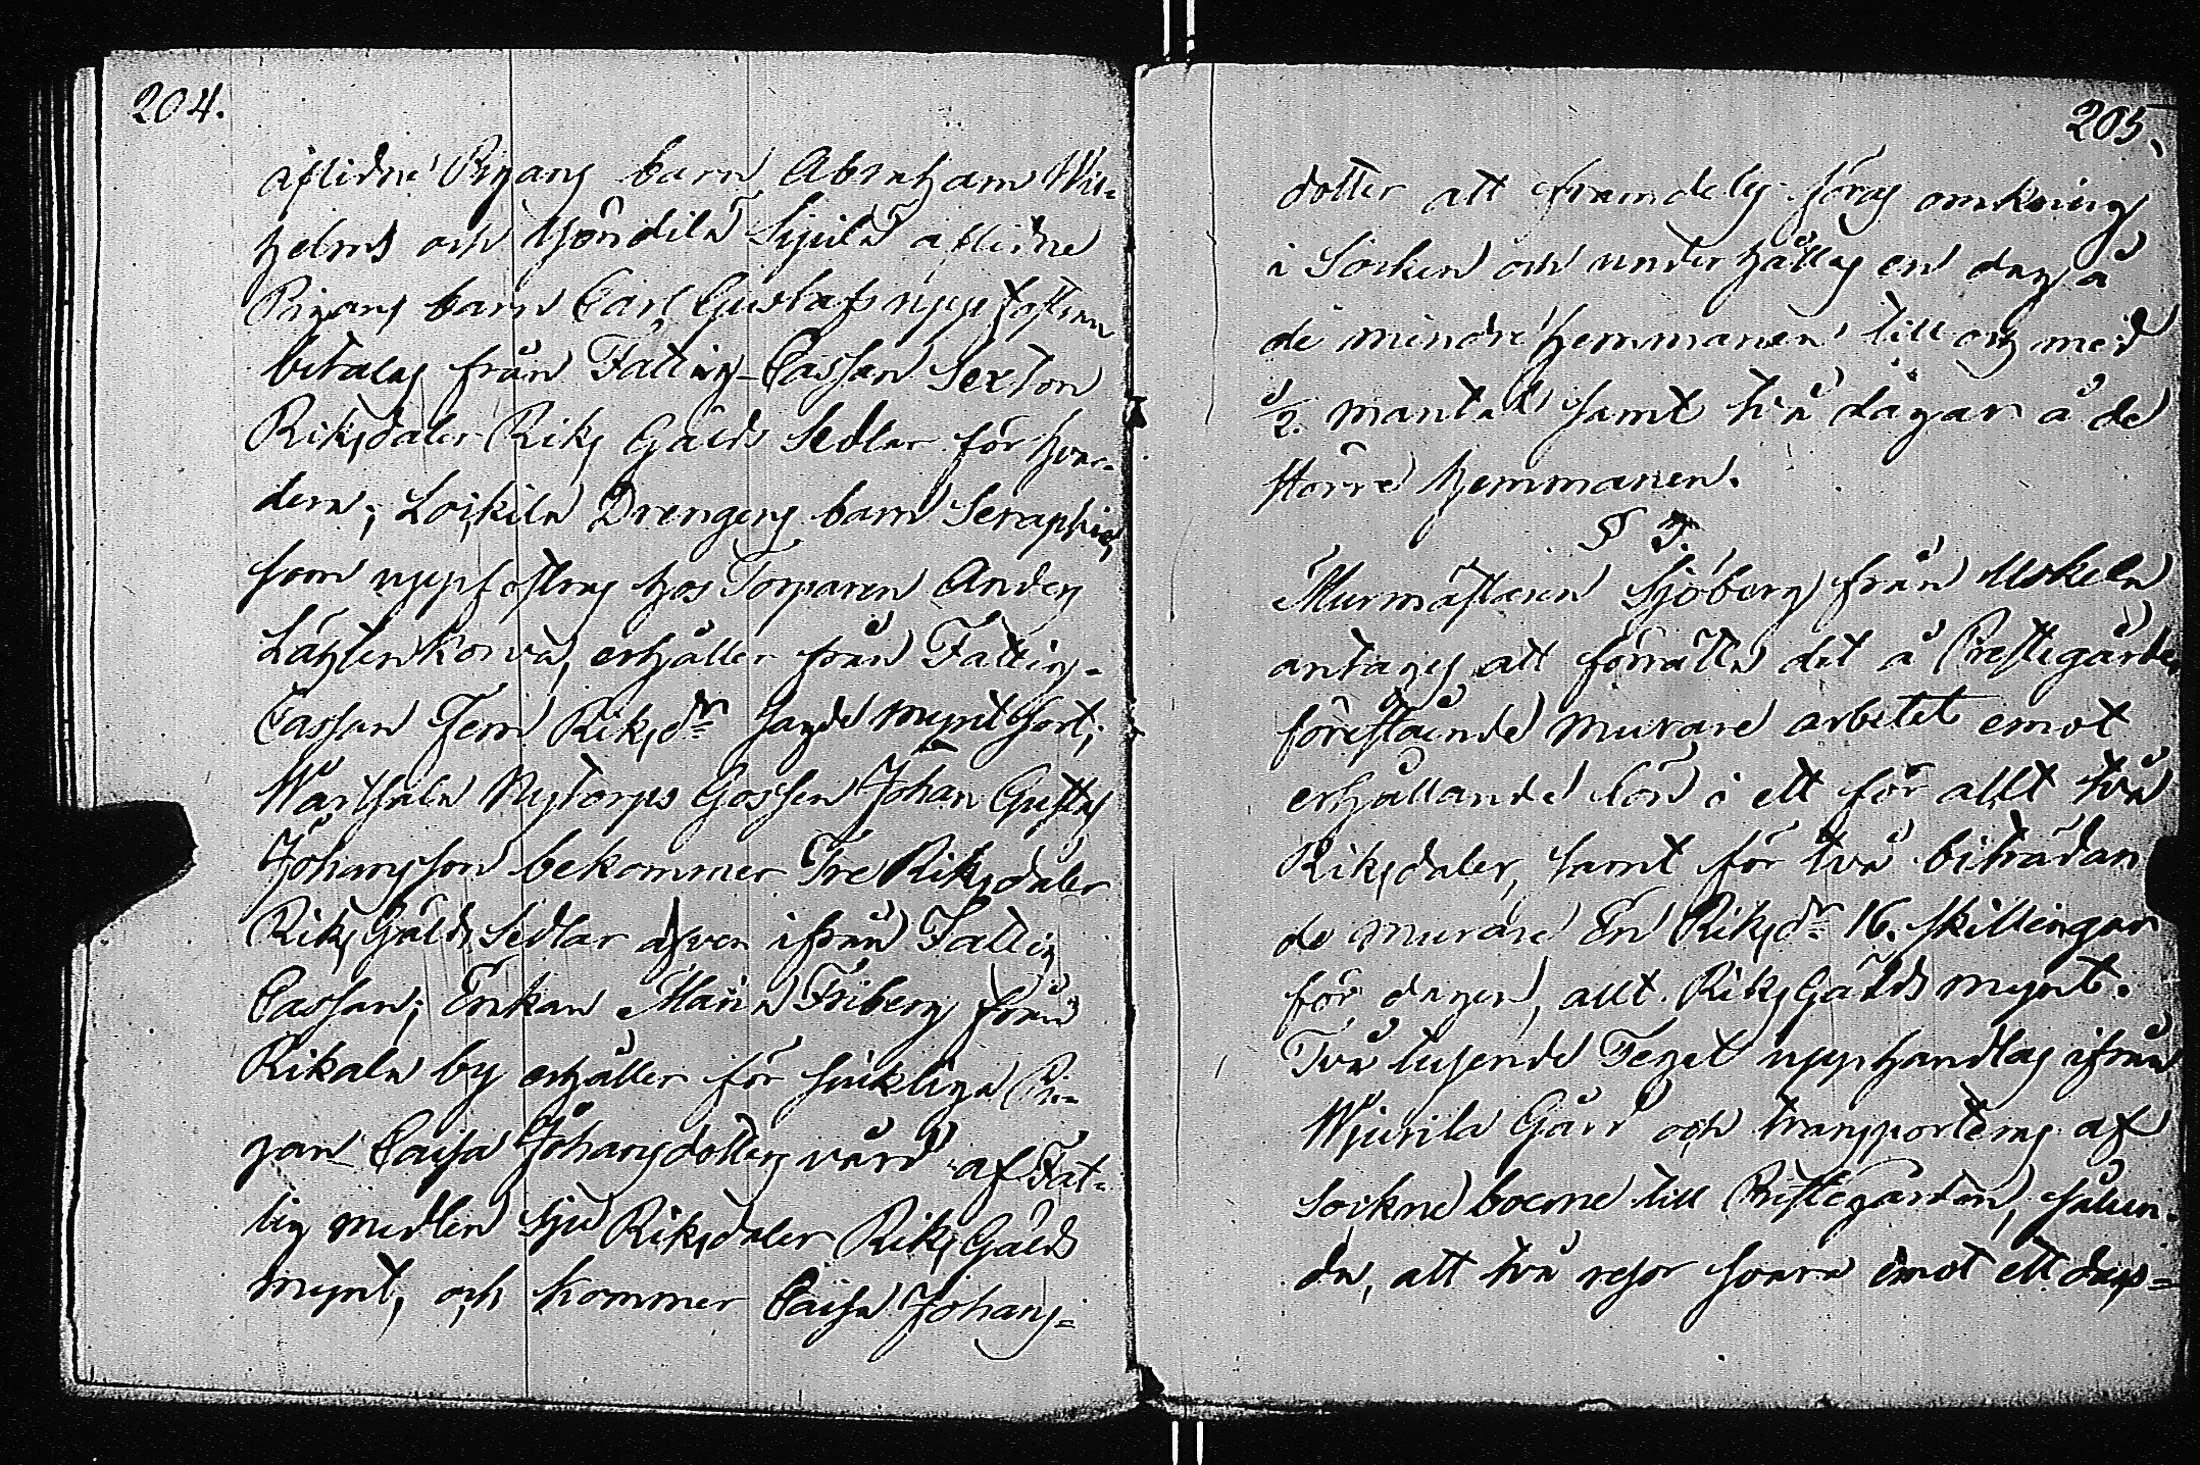 204.
aflidne Pigans barn Abraham Wil=
helms och Yöndilä Sipilä aflidne
Pigans barn Carl Gustafs uppfostran
betalas från Fattig-Cassan Sexton
Riksdaler Riks Gälds Sedlar för hvar=
dera; Loikila Drengens barn Seraphia,
som uppfostras hos Torparen Anders
Lähtenkorva, erhåller från Fattig-
Cassan Fem Riksdr sagde myntsort;
Wartsala Nytorps Gossen Johan Gustaf
Johansson bekommer Tre Riksdaler
Riks Gälds Sedlar äfven ifrån Fattig
Cassan; Enkan Maria Friberg från
Rikala by erhåller för sjukliga Pi=
gan Caisa Johansdotters vård af Fat=
tig medlen Sju Riksdaler Riks Gälds
mynt, och kommer Caisa Johans=
205.
dotter att framdeles föras omkring
i Socken och underhållas en dag å
de mindre hemmanen till och med
1/2 mantal samt två dagar å de
större hemmanen.
§ 3.
Murmästaren Sjöberg från Uskela
antages att förrätta det å Prestegården
förestående murare arbetet emot
erhållande lön i ett för allt två
Riksdaler, samt för två biträdan
de murare En Riksdr 16. skillingar
för dagen, allt Riks Gälds mynt.
Två tusende Tegel upphandlas ifrån
Wjurila Gård och transporteras af
Sockneboerne till Prestegården, sålun=
da, att två resor svara emot ett dags=